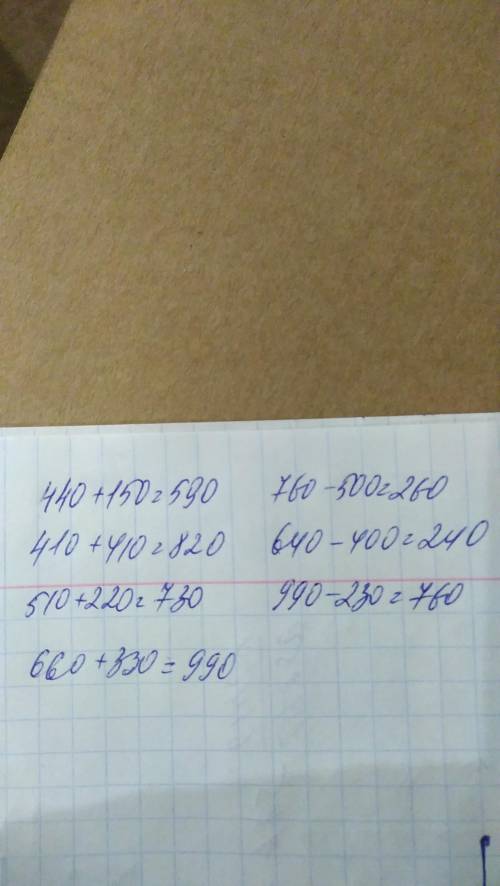 440+150=590
410+410=820
510+220=730
660+330=990
760-500=260
640-400=240
990-230=760